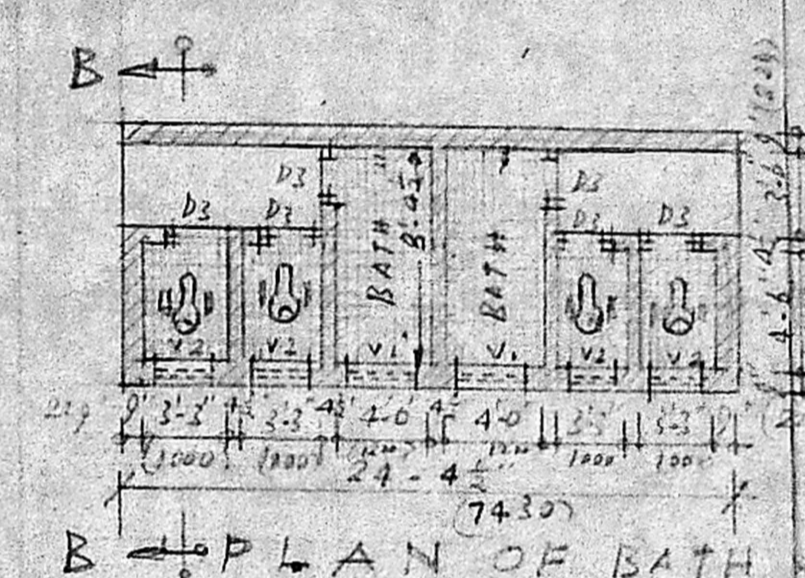 B
D3 D3
D3 D3 D3 D3
BATH 8'-4½" BATH
V2 V2 V1 V1 V2 V2
9" 3'-3" 4½" 3'-3" 4½" 4'-0" 4½" 4'-0" 3'-3" 3'-3" 9"
(1000) (1000) (1200) 1200 1000 1000
24-4½"
(7430)
3'-6"
4½"
4'-6"
B PLAN OF BATH